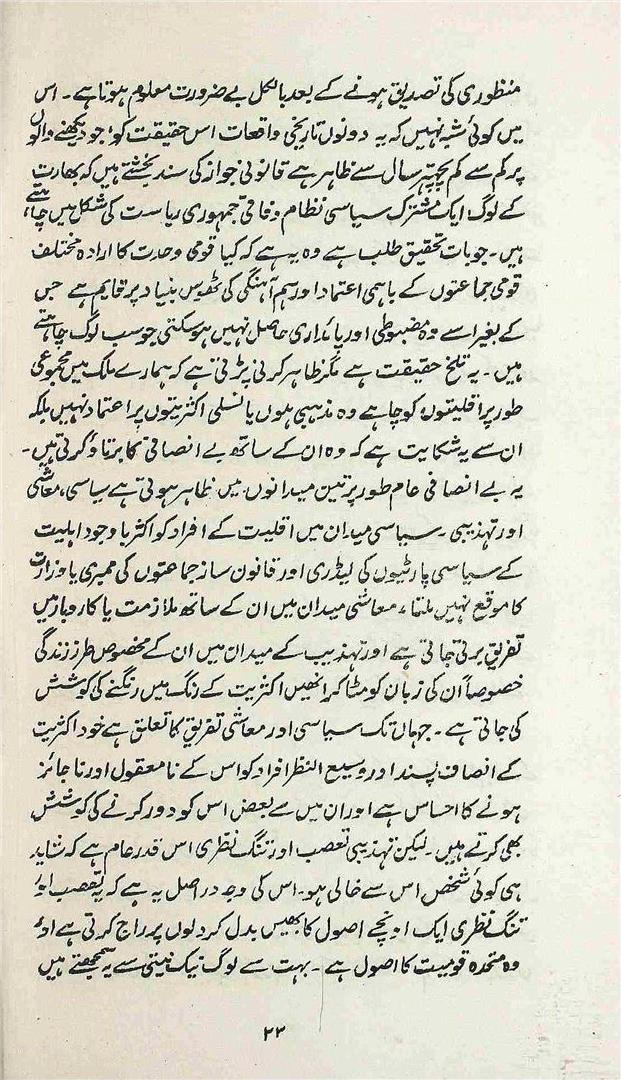 منظوری کی تصدیق ہونے کے بعد بالکل بے ضرورت معلوم ہوتا ہے ۔ اس
میں کوئی شبہ نہیں کہ یہ دونوں تاریخی واقعات اس حقیقت کو، جو دیکھنے والوں
پر کم سے کم پچھتر سال سے ظاہر ہے قانونی جواز کی سند بخشتے ہیں کہ بھارت
کے لوگ ایک مشترک سیاسی نظام وفاقی جمہوری ریاست کی شکل میں چاہتے
ہیں ۔ جو بات تحقیق طلب ہے وہ یہ ہے کہ کیا قومی وحدت کا ارادہ مختلف
قومی جماعتوں کے باہمی اعتماد اور ہم آہنگی کی ٹھوس بنیاد پر قایم ہے جس
کے بغیر اسے وہ مضبوطی اور پائداری حاصل نہیں ہو سکتی جو سب لوگ چاہتے
ہیں ۔ یہ تلخ حقیقت ہے مگر ظاہر کرنی پڑتی ہے کہ ہمارے ملک میں مجموعی
طور پر اقلیتوں کو چاہے وہ مذہبی ہوں یا نسلی اکثریتوں پر اعتماد نہیں بلکہ
ان سے یہ شکایت ہے کہ وہ ان کے ساتھ بے انصافی کا برتاؤ کرتی ہیں ۔
یہ بے انصافی عام طور پر تین میدانوں میں ظاہر ہوتی ہے سیاسی، معاشی
اور تہذیبی ۔ سیاسی میدان میں اقلیت کے افراد کو اکثر باوجود اہلیت
کے سیاسی پارٹیوں کی لیڈری اور قانون ساز جماعتوں کی ممبری یا وزارت
کا موقع نہیں ملتا، معاشی میدان میں ان کے ساتھ ملازمت یا کاروبار میں
تفریق برتی جاتی ہے اور تہذیب کے میدان میں ان کے مخصوص طرز زندگی
خصوصاً ان کی زبان کو مٹا کر انھیں اکثریت کے رنگ میں رنگنے کی کوشش
کی جاتی ہے ۔ جہاں تک سیاسی اور معاشی تفریق کا تعلق ہے خود اکثریت
کے انصاف پسند اور وسیع النظر افراد کو اس کے نامعقول اور ناجائز
ہونے کا احساس ہے اور ان میں سے بعض اس کو دور کرنے کی کوشش
بھی کرتے ہیں ۔ لیکن تہذیبی تعصب اور تنگ نظری اس قدر عام ہے کہ شاید
ہی کوئی شخص اس سے خالی ہو ۔ اس کی وجہ در اصل یہ ہے کہ یہ تعصب اور
تنگ نظری ایک اونچے اصول کا بھیس بدل کر دلوں پر راج کرتی ہے اور
وہ متحدہ قومیت کا اصول ہے ۔ بہت سے لوگ نیک نیتی سے یہ سمجھتے ہیں
۲۳